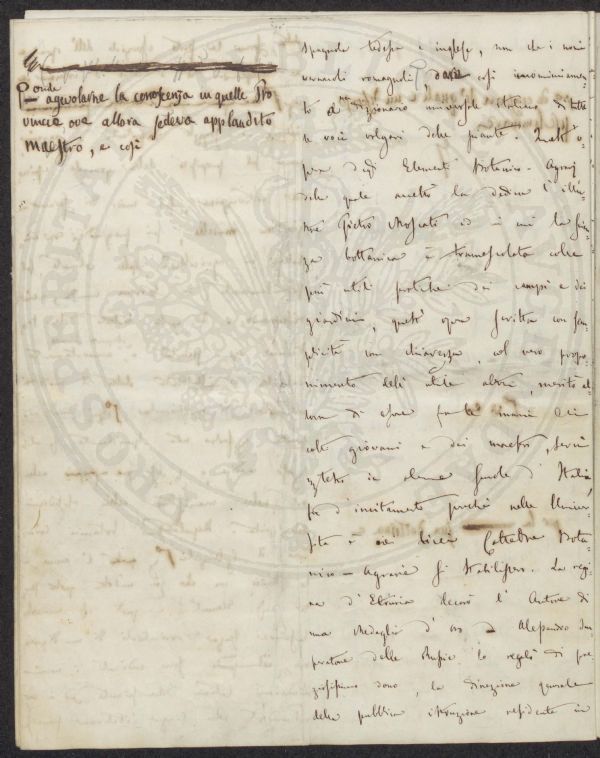 onde
agevolarne la conoscenza in quelle Pro
vincie ove allora sedeva applaudito
maestro, e così
spagnola tedesca e inglese, non che i nomi
vernacoli romagnoli, darà così incominciamen-
to a un dizionario universale italiano di tutte
le voci volgari delle piante. Quest' o-
pera degli Elementi Botanico-Agrarj
della quale accettò la dedica l' illu-
stre Pietro Moscati ed in cui la scien-
za bottanica è frammescolata colle
più utili pratiche dei campi e dei
giardini, quest' opera scritta con sem-
plicità con chiarezza, col vero propo-
nimento dell' utile altrui, meritò al-
lora di essere fra le mani dei
colti giovani e dei maestri, servì
di testo in alcune scuole d' Italia,
fu d' incitamento perchè nelle Univer-
sità e ne' Licei Cattedre Bota-
nico-Agrarie si stabilissero. La regi-
na d' Etruria decorò l' Autore di
una medaglia d' oro e Alessandro Im-
peratore delle Russie lo regalò di pre-
ziosissimo dono, la direzione generale
della pubblica istruzione residente in